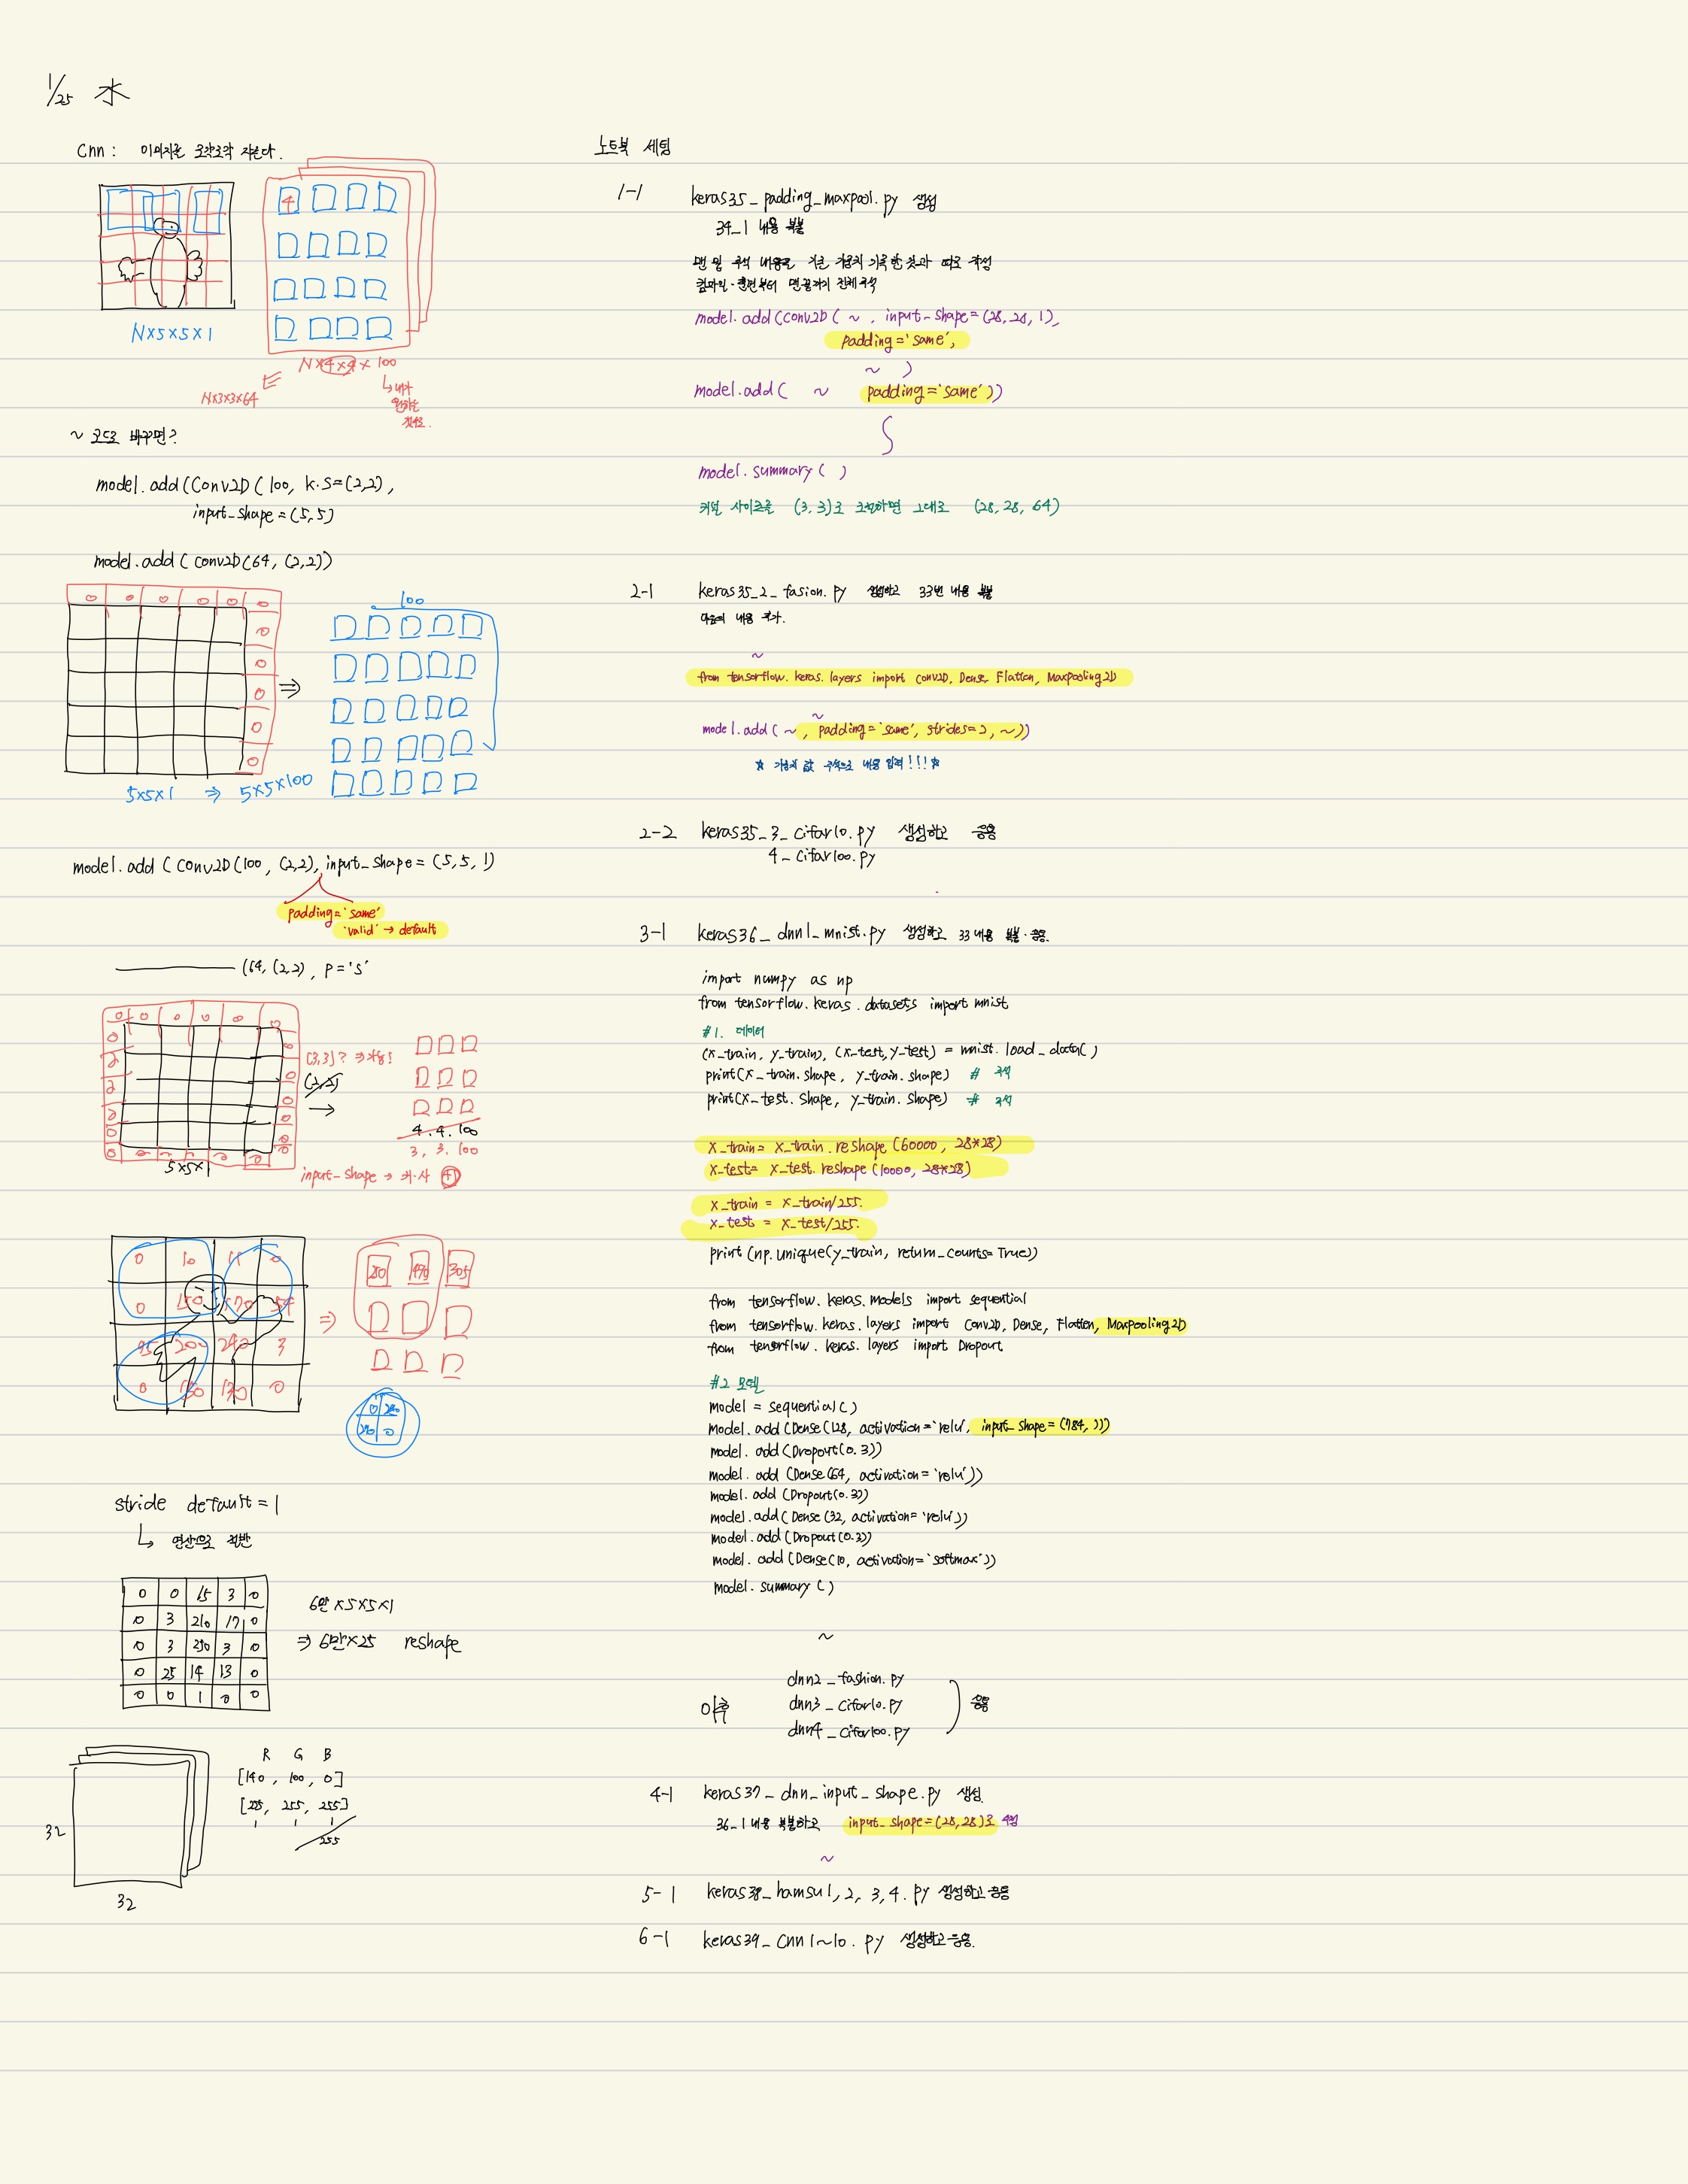 1/25 水
Cnn : 이미지를 조각조각 자른다.
4
N×5×5×1
N×4×4×100
N×3×3×64
↳ 내가
원하는
~ 코드로 바꾸면?
model.add(Conv2D(100, k.s=(2,2),
input_shape=(5,5)
model.add(Conv2D(64, (2,2))
0 0 0 0 0 0
0
0
0
0
0
⇒
100
5×5×1 ⇒ 5×5×100
model.add(Conv2D(100, (2,2), input_shape=(5,5,1)
padding='same'
'valid' → default
(64, (2,2), p='s'
(3,3)? ⇒ 가능!
(2,2)
→
4.4.100
3, 3.100
5×5×1
input_shape →
0 10 11 0
0 150 170 54
95 200 240 3
0 150 130 0
⇒
stride default=1
↳
0 0 15 3 0
0 3 210 17 0
0 3 230 3 0
0 25 14 13 0
0 0 1 0 0
6만×5×5×1
⇒ 6만×25 reshape
R G B
[140, 100, 0]
[255, 255, 255]
255
32
32
노트북 세팅
1-1 keras35_padding_maxpool.py 생성
34_1 내용 복붙
model.add(Conv2D( ~ , input_shape=(28,28,1),
padding='same',
~ )
model.add( ~ padding='same'))
model.summary( )
커널 사이즈를 (3,3)로 조절하면 그대로 (28,28,64)
2-1 keras35_2_fasion.py 생성하고 33번 내용 복붙
다음의 내용 추가.
~
from tensorflow.keras.layers import Conv2D, Dense, Flatten, Maxpooling2D
~
model.add( ~ , padding='same', strides=2, ~))
☆ 가중치 값 주석으로 내용 입력!!! ☆
2-2 keras35_3_cifar10.py 생성하고 응용
4_cifar100.py
3-1 keras36_dnn1_mnist.py 생성하고 33 내용 복붙·응용.
import numpy as np
from tensorflow.keras.datasets import mnist
#1. 데이터
(x_train, y_train), (x_test, y_test) = mnist.load_data( )
print(x_train.shape, y_train.shape) # 주석
print(x_test.shape, y_train.shape) # 주석
x_train= x_train.reshape(60000, 28*28)
x_test= x_test.reshape(10000, 28*28)
x_train = x_train/255.
x_test = x_test/255.
print(np.unique(y_train, return_counts=True))
from tensorflow.keras.models import sequential
from tensorflow.keras.layers import Conv2D, Dense, Flatten, Maxpooling2D
from tensorflow.keras.layers import Dropout
#2 모델
model = sequential( )
model.add(Dense(128, activation='relu', input_shape=(784, )))
model.add(Dropout(0.3))
model.add(Dense(64, activation='relu'))
model.add(Dropout(0.3))
model.add(Dense(32, activation='relu'))
model.add(Dropout(0.3))
model.add(Dense(10, activation='softmax'))
model.summary( )
~
dnn2_fashion.py
이후 dnn3_cifar10.py 응용
dnn4_cifar100.py
4-1 keras37_dnn_input_shape.py 생성
36_1 내용 복붙하고 input_shape=(28,28)로 수정
~
5-1 keras38_hamsu1, 2, 3, 4.py 생성하고 응용
6-1 keras39_cnn1~10.py 생성하고 응용.